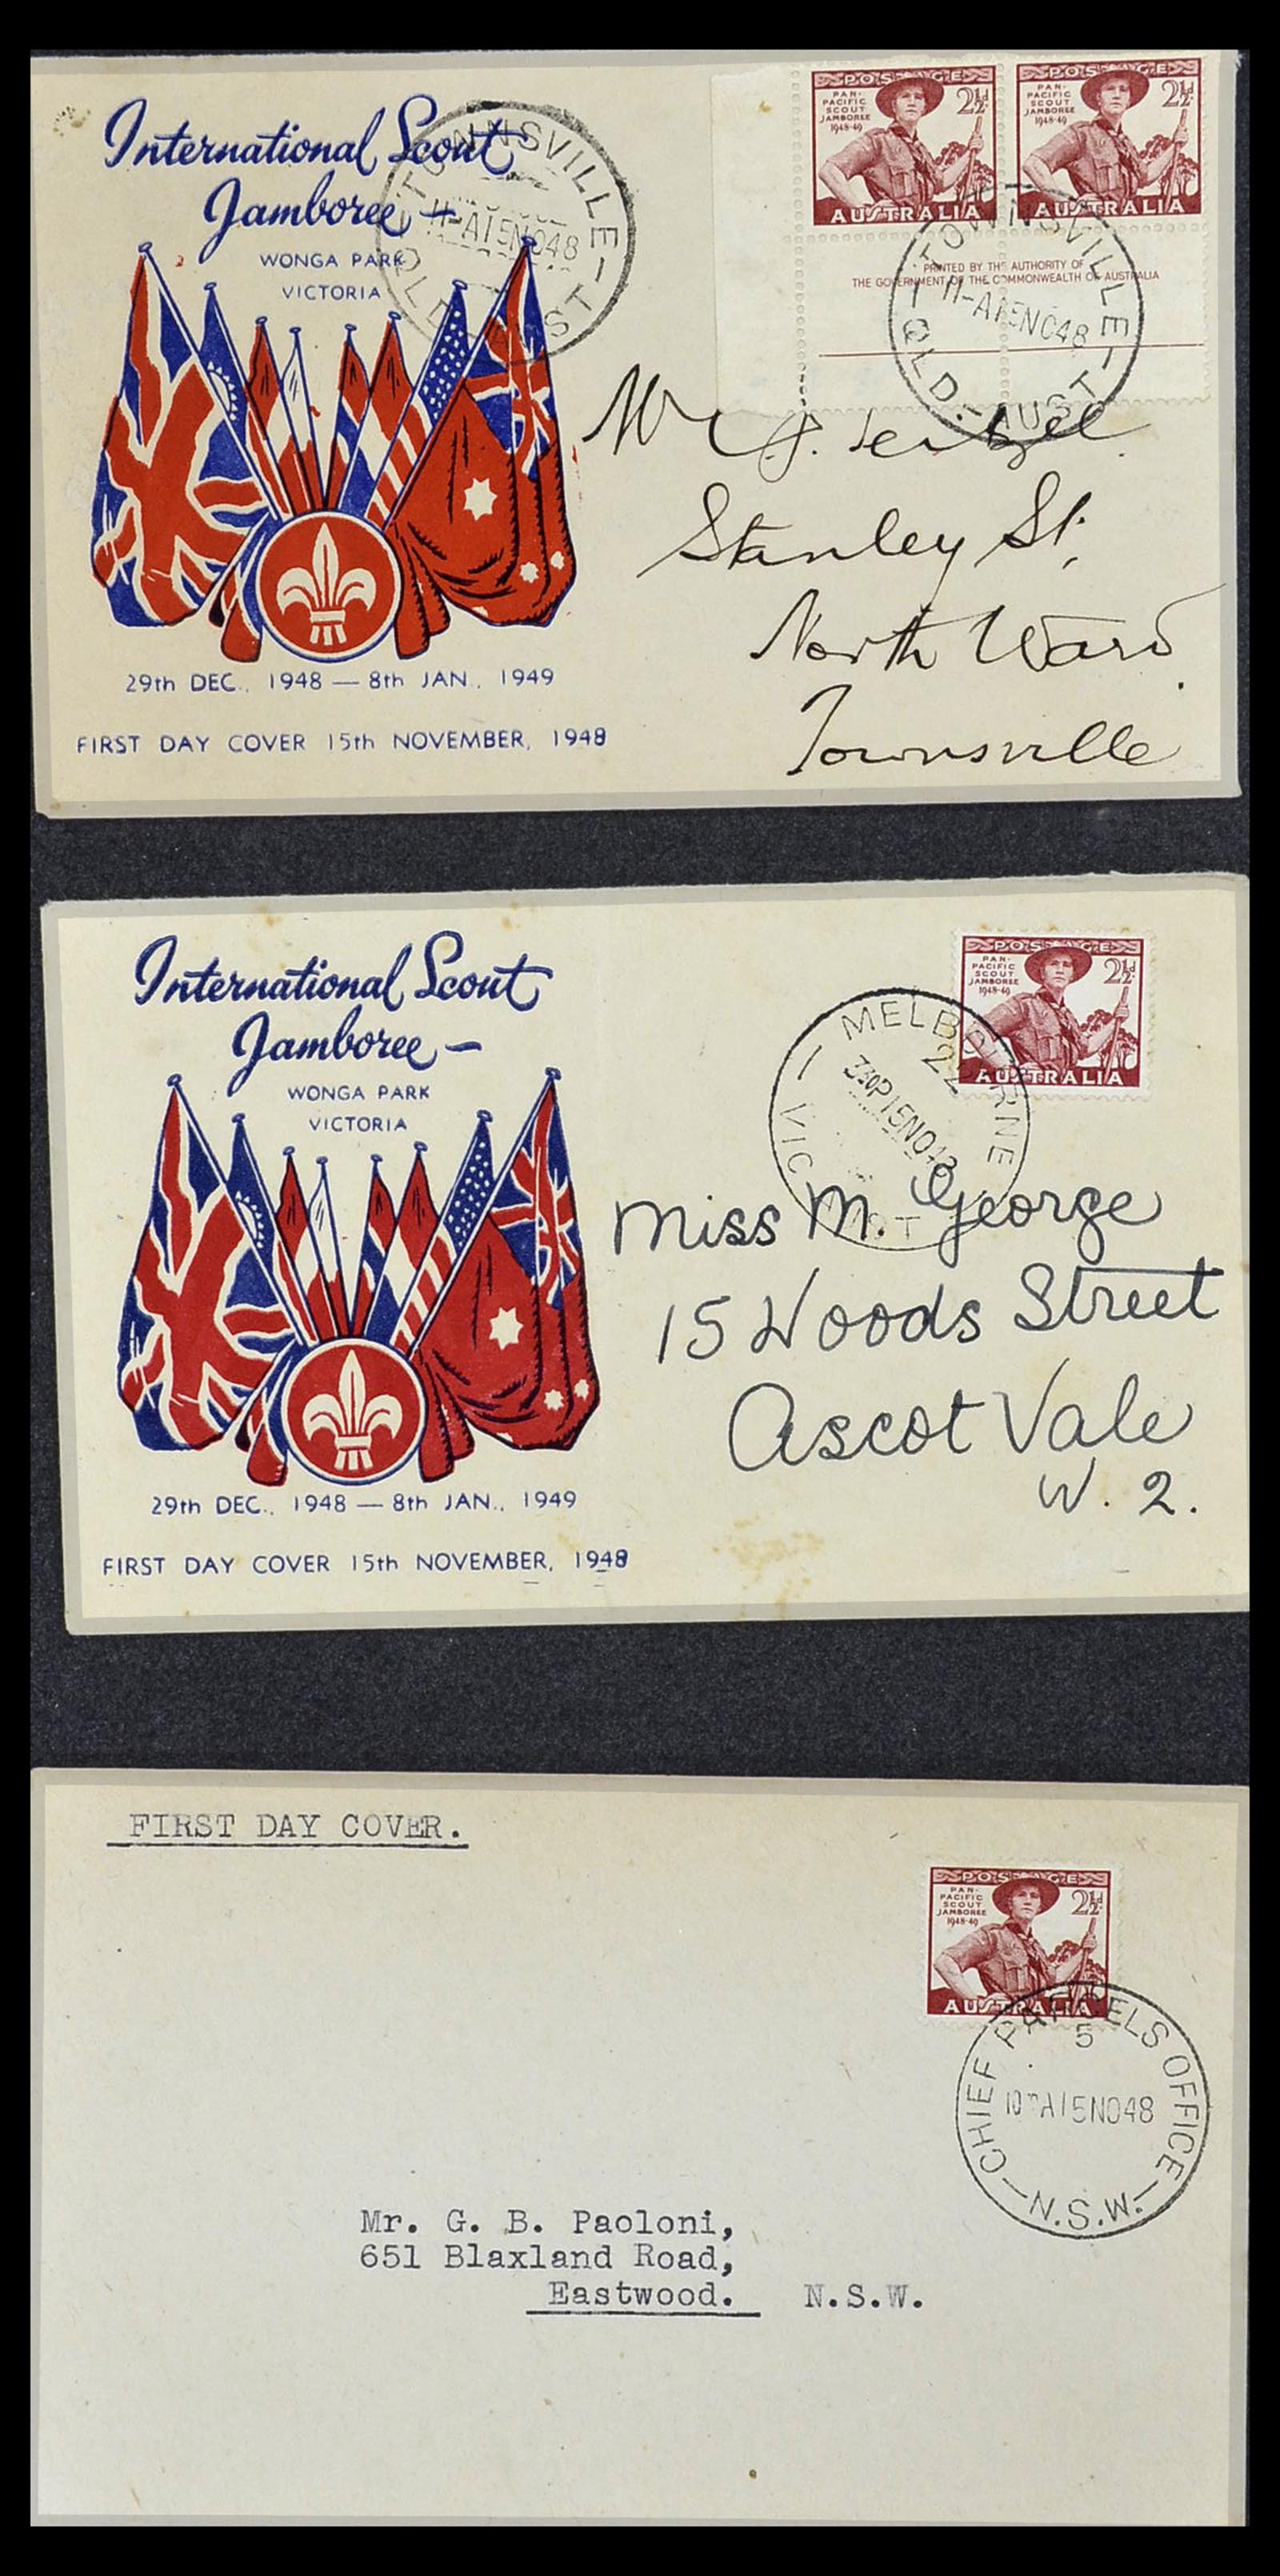 International Scout
Jamboree
WONGA PARK
VICTORIA
29th DEC., 1948 — 8th JAN., 1949
FIRST DAY COVER 15th NOVEMBER, 1948
TOWNSVILLE
11-A15NO48
QLD. AUST
POSTAGE
PAN-
PACIFIC
SCOUT
JAMBOREE
1948-49
2½d
AUSTRALIA
POSTAGE
PAN-
PACIFIC
SCOUT
JAMBOREE
1948-49
2½d
AUSTRALIA
PRINTED BY THE AUTHORITY OF
THE GOVERNMENT OF THE COMMONWEALTH OF AUSTRALIA
TOWNSVILLE
11-A15NO48
QLD. AUST
Mr J.
Stanley St.,
North Ward
Townsville
International Scout
Jamboree
WONGA PARK
VICTORIA
29th DEC., 1948 — 8th JAN., 1949
FIRST DAY COVER 15th NOVEMBER, 1948
POSTAGE
PAN-
PACIFIC
SCOUT
JAMBOREE
1948-49
2½d
AUSTRALIA
MELBOURNE
22
330P15NO48
VIC AUST
Miss M. George
15 Woods Street
Ascot Vale
W. 2.
FIRST DAY COVER.
POSTAGE
PAN-
PACIFIC
SCOUT
JAMBOREE
1948-49
2½d
AUSTRALIA
CHIEF PARCELS OFFICE
5
A15NO48
N.S.W.
Mr. G. B. Paoloni,
651 Blaxland Road,
Eastwood. N.S.W.